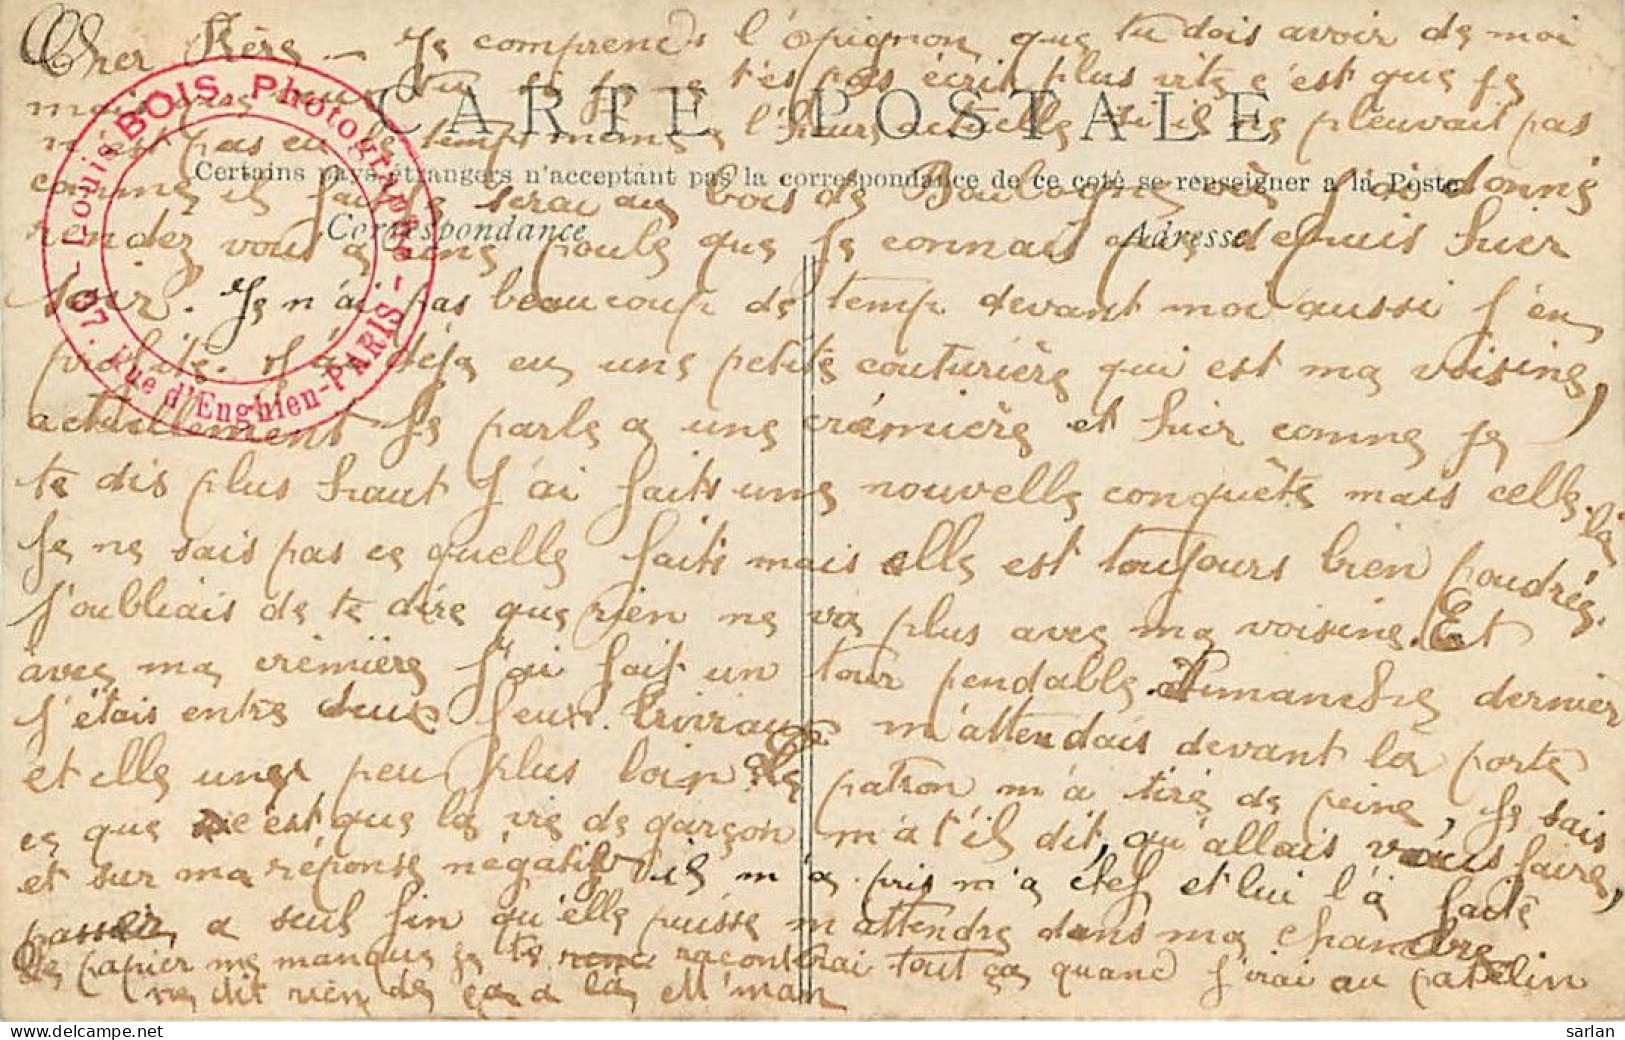 Cher Frère – Je comprends l'opignon que tu dois avoir de moi
mais vois tu si je ne t'es pas écrit plus vite c'est que je
CARTE POSTALE
n'est pas eu le temp même l'heure actuelle si il ne pleuvait pas
Certains pays étrangers n'acceptant pas la correspondance de ce coté se renseigner a la Poste
comme il fait je serai au bois de Boulogne j'ai donné
Correspondance
Adresse
rendez vous a une poule que je connait que depuis hier
soir. Je n'ai pas beaucoup de temp devant moi aussi j'en
profite. J'ai déja eu une petite couturière qui est ma voisine,
actuellement je parle a une crémière et hier comme je
te dis plus haut j'ai faits une nouvelle conquête mais celle là
je ne sais pas ce quelle faits mais elle est toujours bien poudrée.
j'oubliais de te dire que rien ne va plus avec ma voisine. Et
avec ma crémière j'ai fait un tour pendable. Dimanche dernier
j'étais entre deux feux. m'attendais devant la porte
et elle une peu plus loin. Le patron m'a tiré de peine, Je sais
ce que c'est que la vie de garçon m'a t'il dit, qu'allais vous faire,
et sur ma réponse négatif il m'a pris m'a clef et lui l'a faite
passer a seul fin qu'elle puisse m'attendre dans ma chambre
Le papier me manque je te racontrai tout ça quand j'irai au patelin
ne dit rien de ça a la M'man
Louis BOIS Photographe
37. Rue d'Enghien-PARIS
sarlan